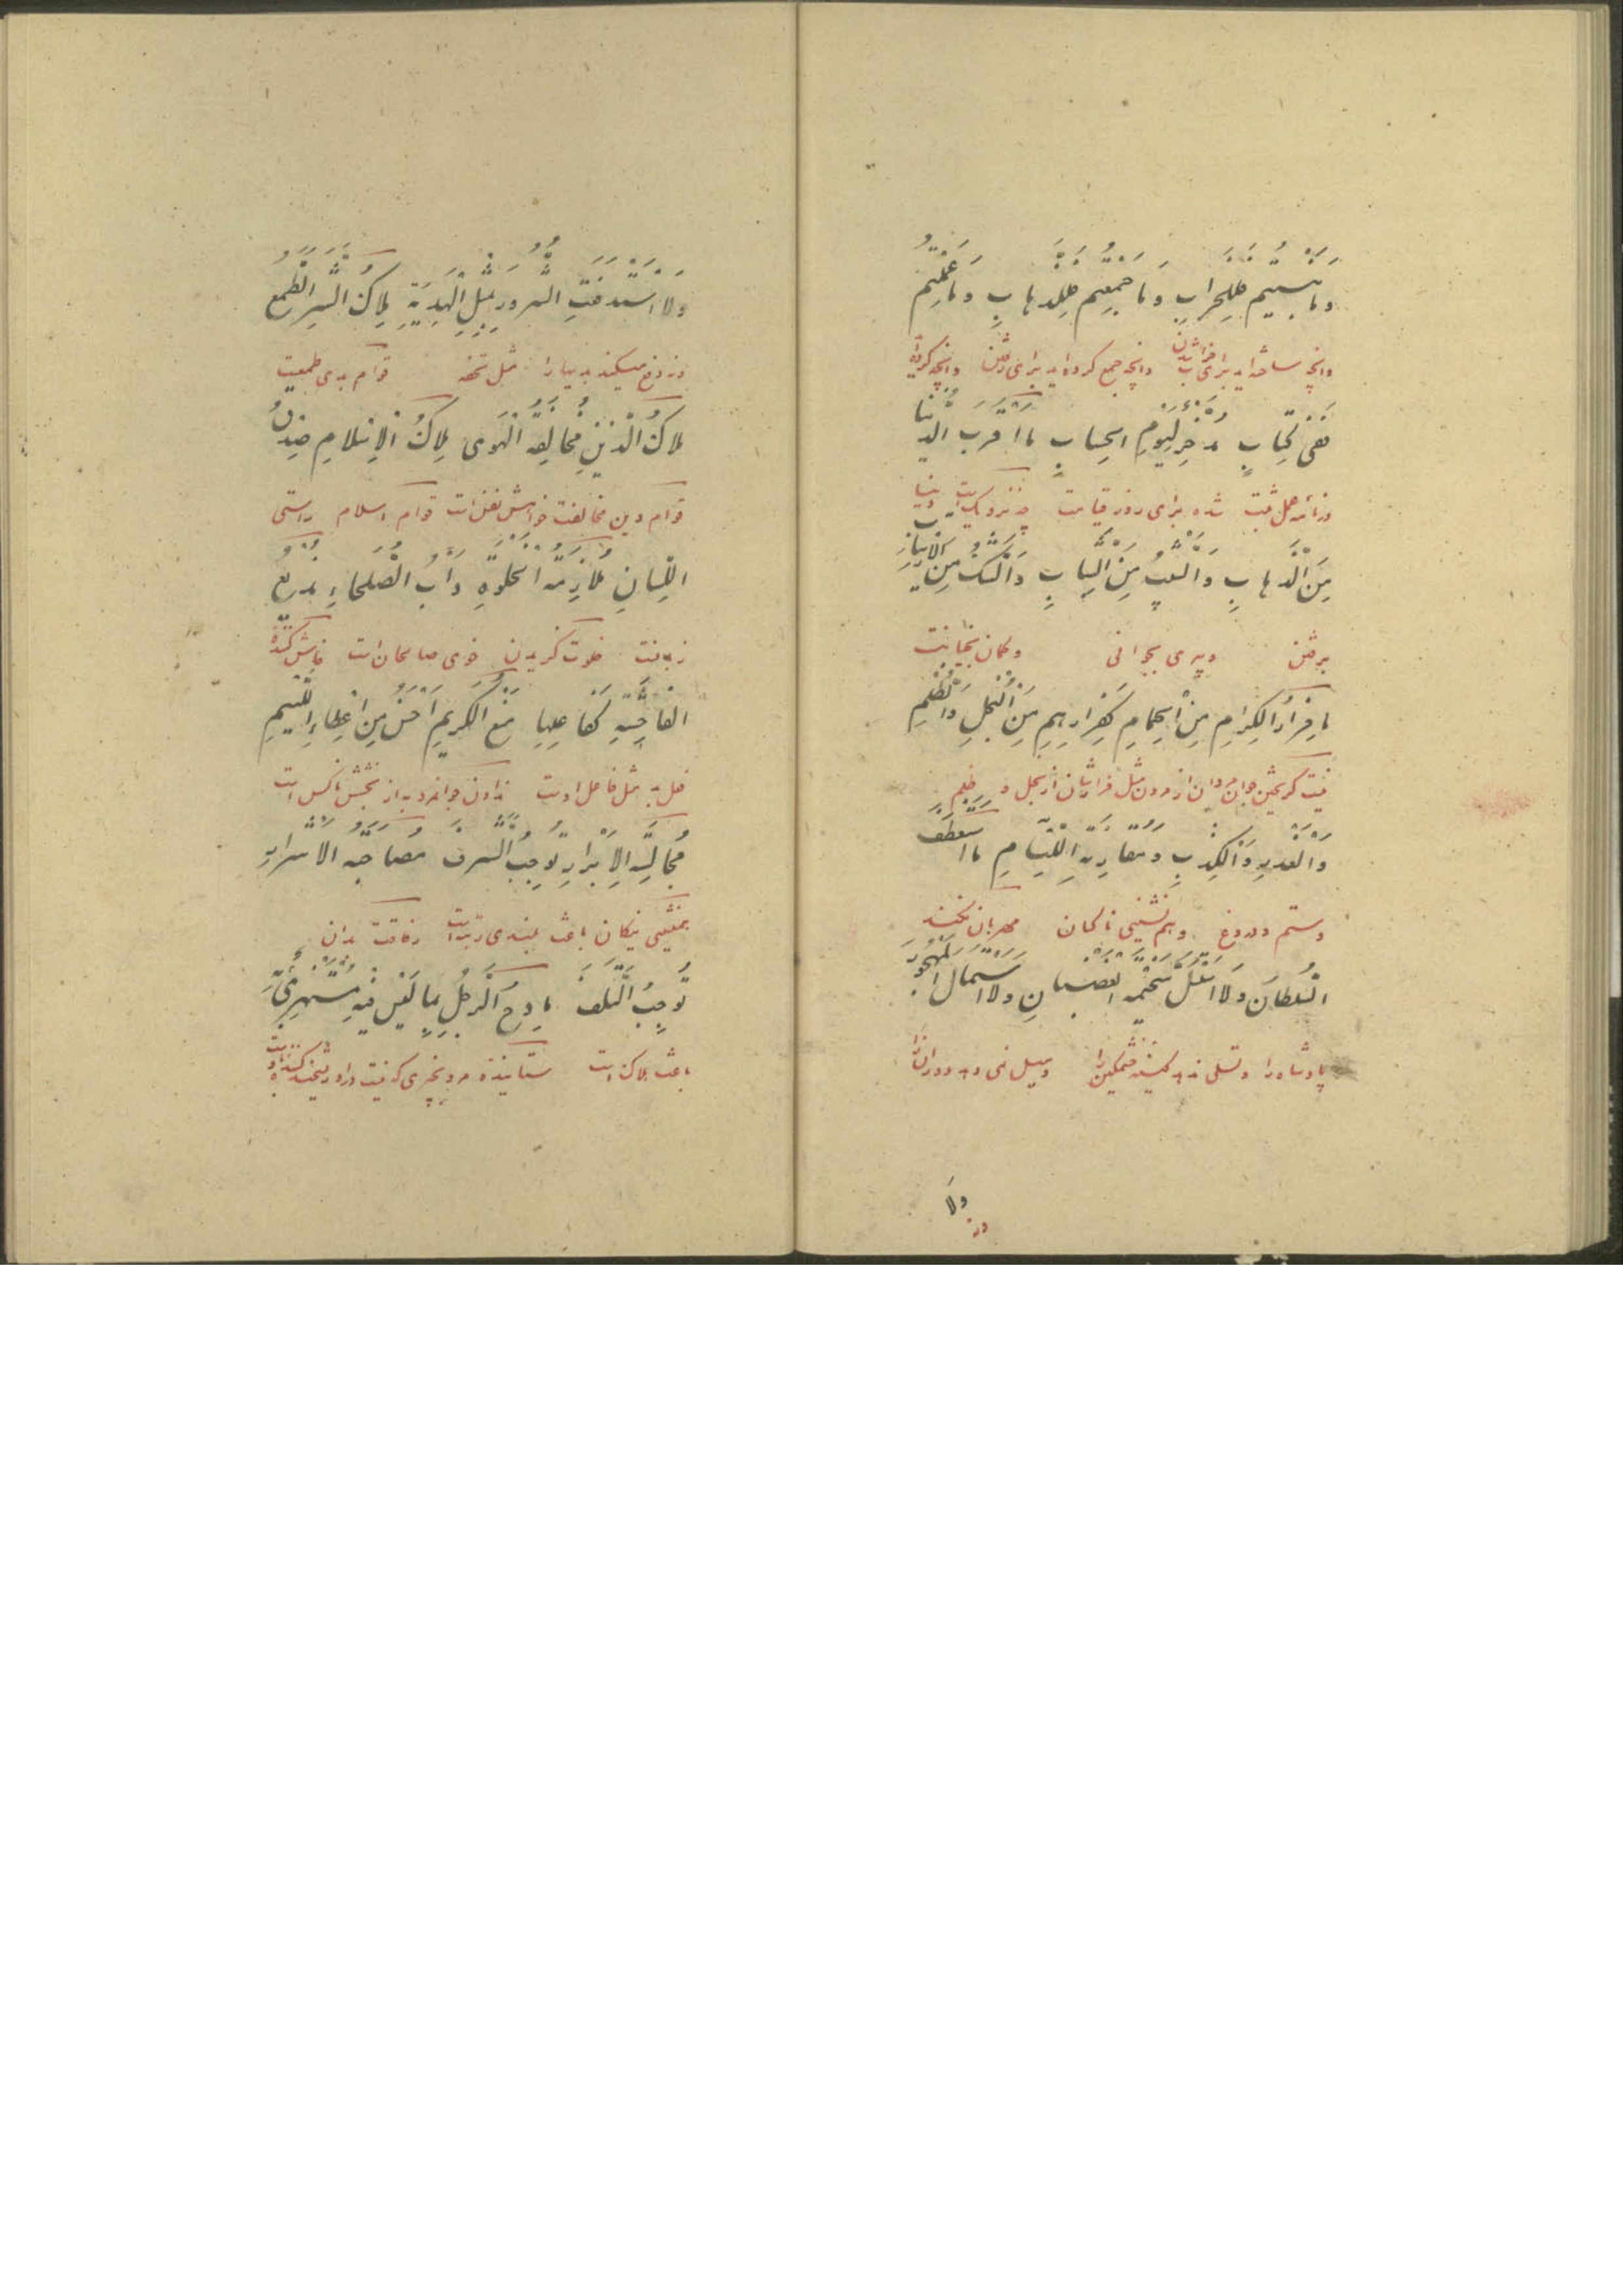 وما بنیتم فللخراب وما جمعتم فللذهاب وما عملتم
وانچه ساخته اید برای خراب شدن وانچه جمع کرده اید برای رفتن وانچه کرده اید
ففی کتاب مدخر لیوم الحساب ما اقرب الدنیا
در نامه عمل ثبت شده برای روز قیامت چه نزدیک است دنیا
من الذهاب والشیب من الشباب والشک من الارتیاب
برفتن وپیری بجوانی وکمان
ما فرار الکرام من الحمام کفرارهم من البخل والظلم
نیست کریختن جوان مردان از مردن مثل فرار ایشان از بخل و ظلم
والغدر والکذب ومقارنة اللئام ما استعطف
وستم ودروغ وهم نشینی ناکسان مهربان نکند
السلطان ولا استسل سخیمة الغضبان ولا استمال المهجور
پادشاه را وتسلی ندهد کینه خشمکین را ومیل نمی دهد دوران را
ولا
در
ولا استدفعت الشرور بمثل الهدیة ملاک الشر الطمع
ودفع میکند بدیها را مثل تحفه قوام بدی طمعست
ملاک الدین مخالفة الهوی ملاک الاسلام صدق
قوام دین مخالفت خواهش نفس است قوام اسلام راستی
اللسان ملازمة الخلوة داب الصلحاء مذیع
زبانست خلوت کزیدن خوی صالحان است فاش کننده
الفاحشة کفاعلها منع الکریم احسن من اعطاء اللئیم
فعل بد مثل فاعل اوست ندادن جوانمرد به از بخشش ناکس است
مجالسة الابرار توجب الشرف مصاحبة الاشرار
همنشینی نیکان باعث بلندی رتبه است رفاقت بدان
توجب التلف مادح الرجل بما لیس فیه مستهزئ به
باعث هلاکت است ستاینده مرد بچیزی که نیست در او ریشخند کننده است باو